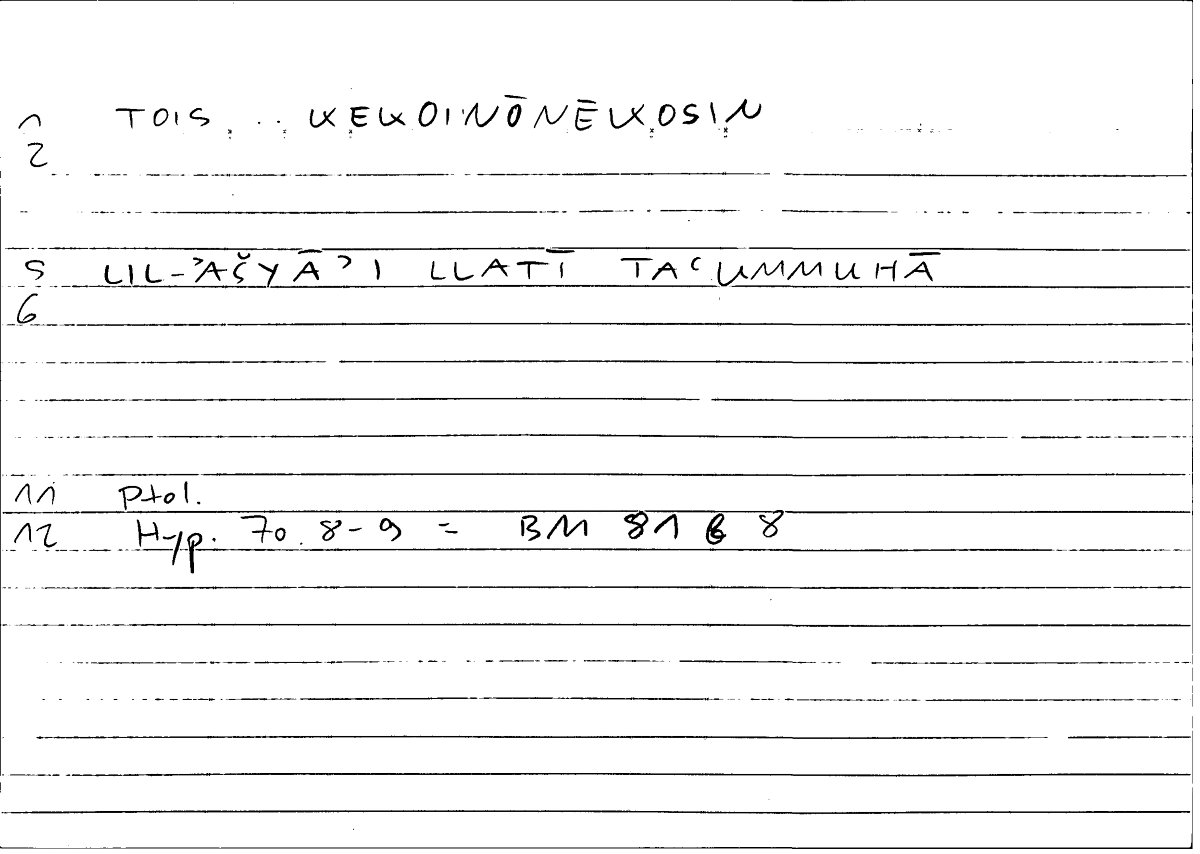 1 TOIS .. KEKOINŌNĒKOSIN
2
5 LIL-ʾAŠYĀʾI LLATĪ TAʿUMMUHĀ
6
11 Ptol.
12 Hyp. 70.8-9 = BM 81 6 8